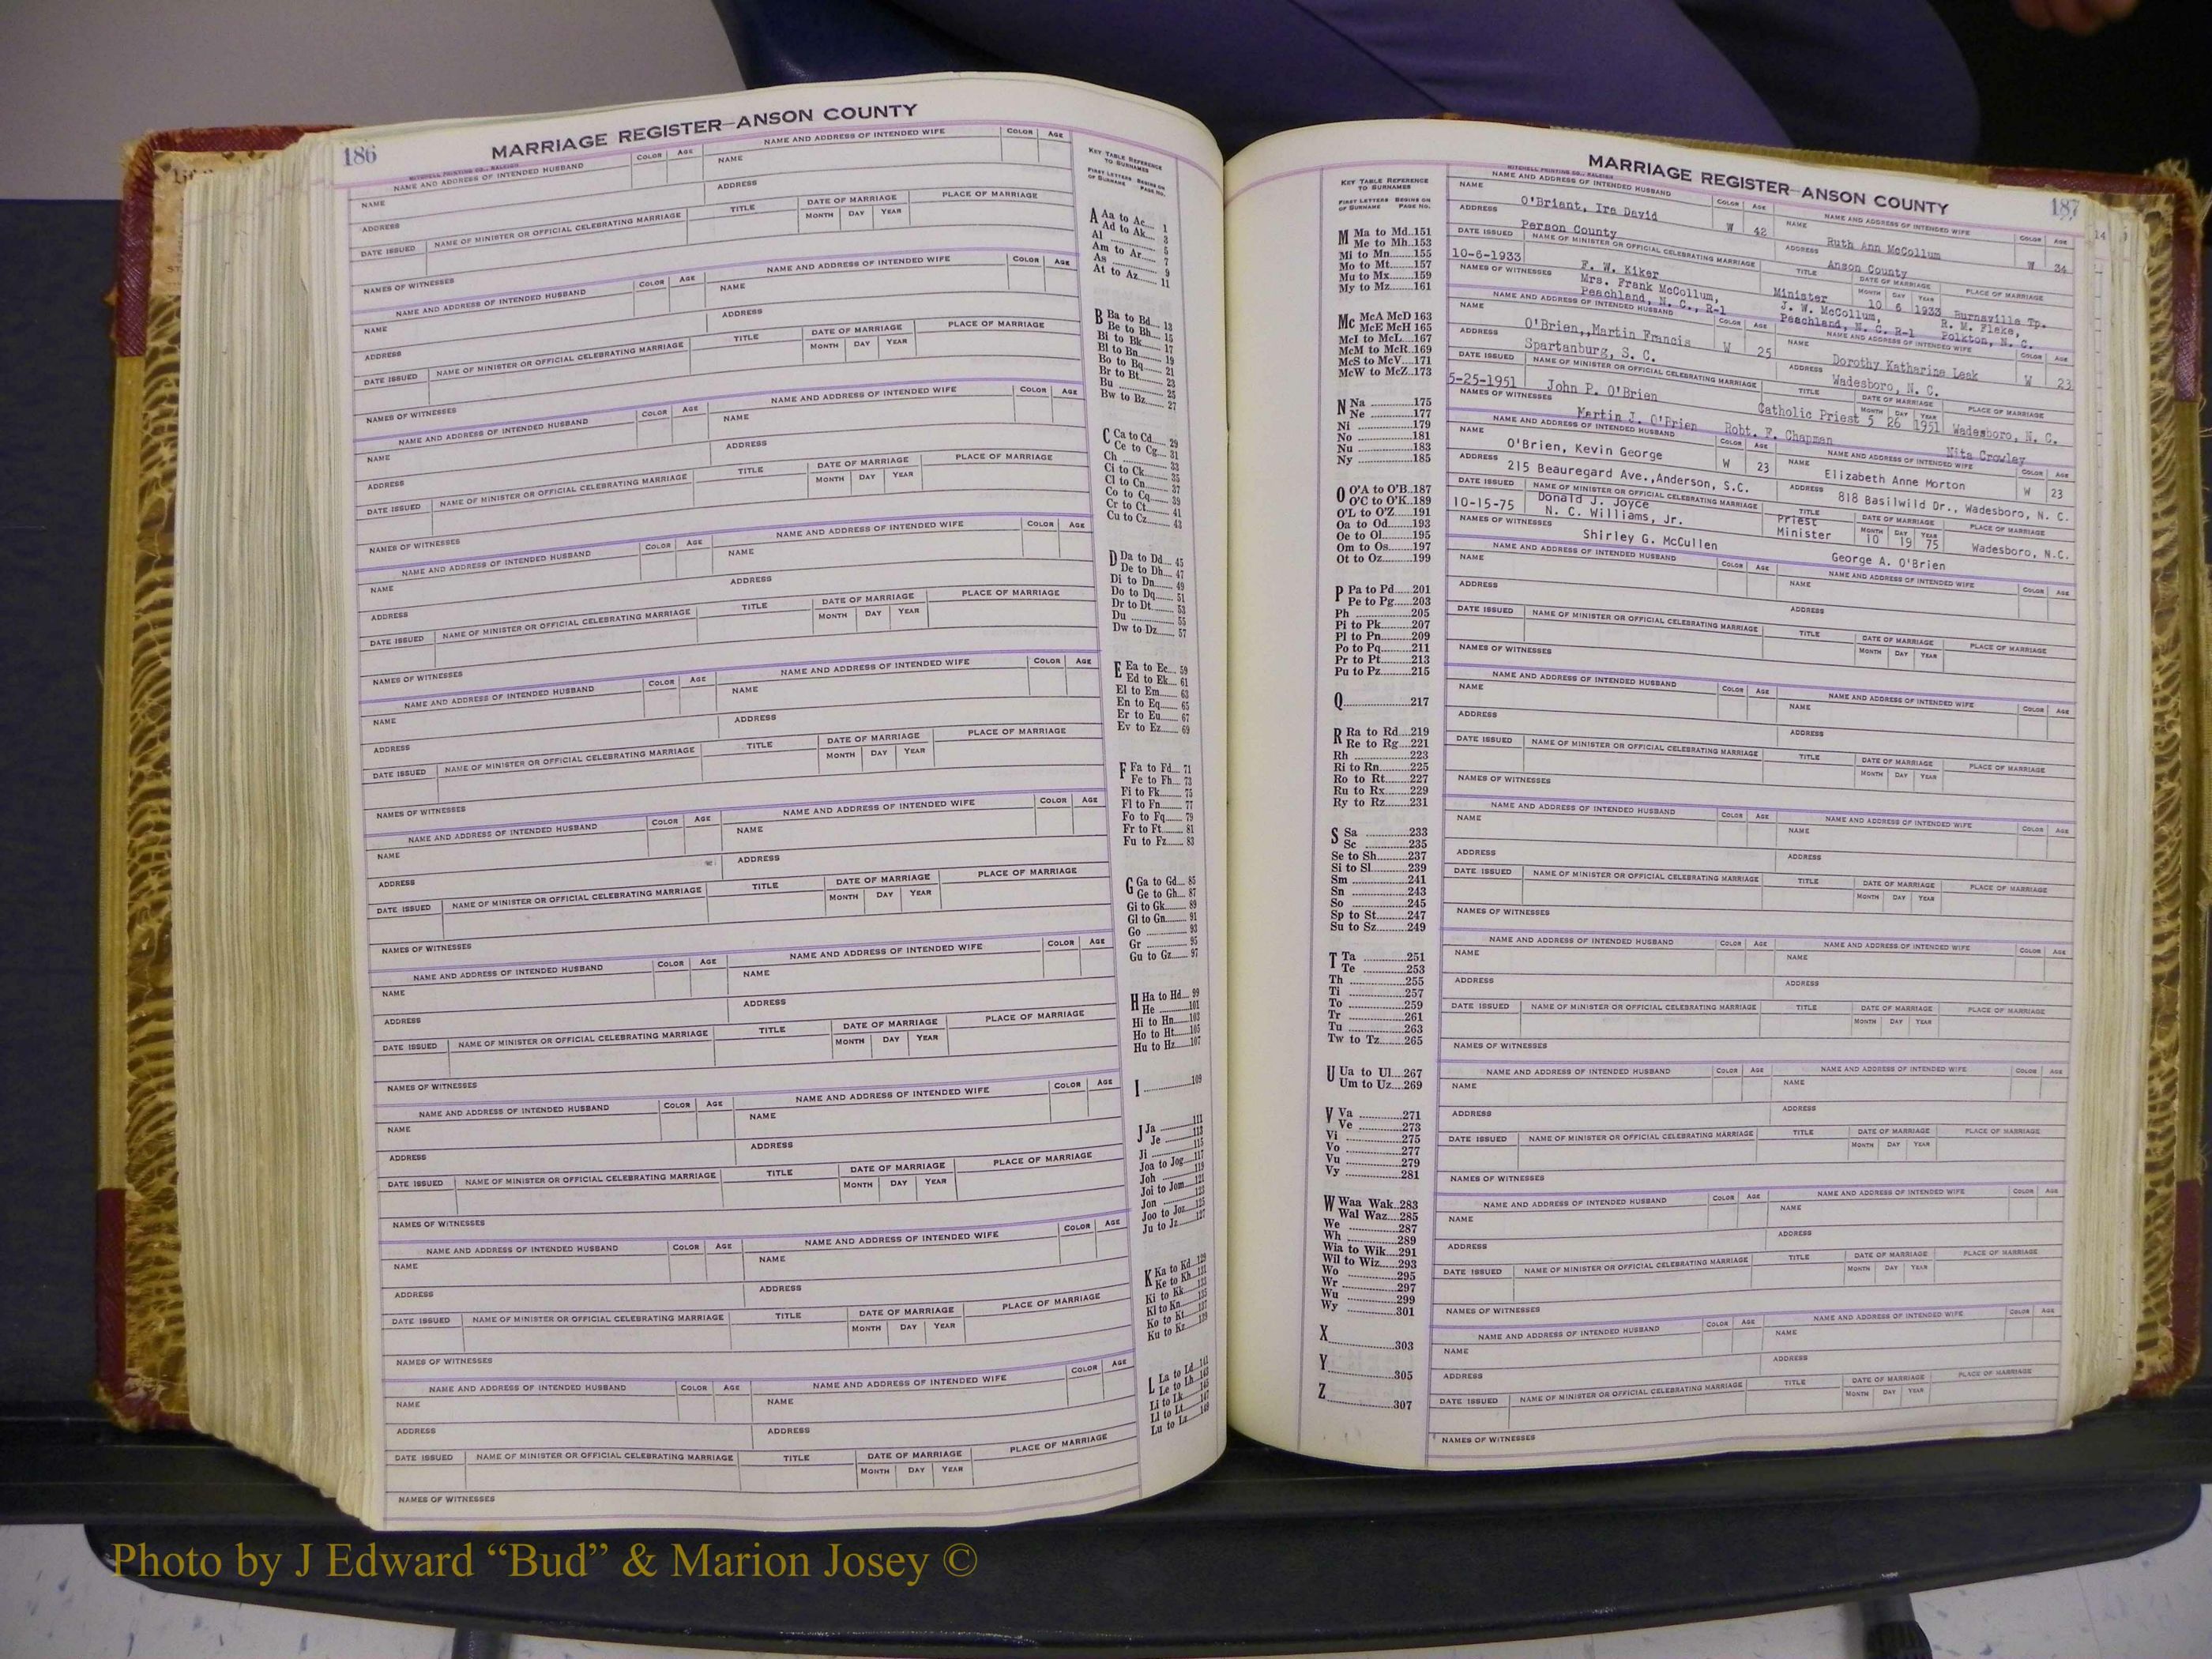 186
MARRIAGE REGISTER—ANSON COUNTY
MITCHELL PRINTING CO., RALEIGH
NAME AND ADDRESS OF INTENDED HUSBAND COLOR AGE NAME AND ADDRESS OF INTENDED WIFE COLOR AGE
NAME NAME
ADDRESS ADDRESS
DATE ISSUED NAME OF MINISTER OR OFFICIAL CELEBRATING MARRIAGE TITLE DATE OF MARRIAGE PLACE OF MARRIAGE
MONTH DAY YEAR
NAMES OF WITNESSES
KEY TABLE REFERENCE
TO SURNAMES
FIRST LETTERS BEGINS ON
OF SURNAME PAGE NO.
A Aa to Ac 1
Ad to Ak 3
Al 5
Am to Ar 7
As 9
At to Az 11
B Ba to Bd 13
Be to Bh 15
Bi to Bk 17
Bl to Bn 19
Bo to Bq 21
Br to Bt 23
Bu 25
Bw to Bz 27
C Ca to Cd 29
Ce to Cg 31
Ch 33
Ci to Ck 35
Cl to Cn 37
Co to Cq 39
Cr to Ct 41
Cu to Cz 43
D Da to Dd 45
De to Dh 47
Di to Dn 49
Do to Dq 51
Dr to Dt 53
Du 55
Dw to Dz 57
E Ea to Ec 59
Ed to Ek 61
El to Em 63
En to Eq 65
Er to Eu 67
Ev to Ez 69
F Fa to Fd 71
Fe to Fh 73
Fi to Fk 75
Fl to Fn 77
Fo to Fq 79
Fr to Ft 81
Fu to Fz 83
G Ga to Gd 85
Ge to Gh 87
Gi to Gk 89
Gl to Gn 91
Go 93
Gr 95
Gu to Gz 97
H Ha to Hd 99
He 101
Hi to Hn 103
Ho to Ht 105
Hu to Hz 107
I 109
J Ja 111
Je 113
Ji 115
Joa to Jog 117
Joh 119
Joi to Jom 121
Jon 123
Joo to Joz 125
Ju to Jz 127
K Ka to Kd 129
Ke to Kh 131
Ki to Kk
Kl to Kn
Ko to Kt
Ku to Kz
L La to Ld 141
Le to Lh 143
Li to Lk 145
Ll to Lt 147
Lu to Lz 149
187
MARRIAGE REGISTER—ANSON COUNTY
MITCHELL PRINTING CO., RALEIGH
KEY TABLE REFERENCE
TO SURNAMES
FIRST LETTERS BEGINS ON
OF SURNAME PAGE NO.
M Ma to Md 151
Me to Mh 153
Mi to Mn 155
Mo to Mt 157
Mu to Mx 159
My to Mz 161
Mc McA McD 163
McE McH 165
McI to McL 167
McM to McR 169
McS to McV 171
McW to McZ 173
N Na 175
Ne 177
Ni 179
No 181
Nu 183
Ny 185
O O'A to O'B 187
O'C to O'K 189
O'L to O'Z 191
Oa to Od 193
Oe to Ol 195
Om to Os 197
Ot to Oz 199
P Pa to Pd 201
Pe to Pg 203
Ph 205
Pi to Pk 207
Pl to Pn 209
Po to Pq 211
Pr to Pt 213
Pu to Pz 215
Q 217
R Ra to Rd 219
Re to Rg 221
Rh 223
Ri to Rn 225
Ro to Rt 227
Ru to Rx 229
Ry to Rz 231
S Sa 233
Sc 235
Se to Sh 237
Si to Sl 239
Sm 241
Sn 243
So 245
Sp to St 247
Su to Sz 249
T Ta 251
Te 253
Th 255
Ti 257
To 259
Tr 261
Tu 263
Tw to Tz 265
U Ua to Ul 267
Um to Uz 269
V Va 271
Ve 273
Vi 275
Vo 277
Vu 279
Vy 281
W Waa Wak 283
Wal Waz 285
We 287
Wh 289
Wia to Wik 291
Wil to Wiz 293
Wo 295
Wr 297
Wu 299
Wy 301
X 303
Y 305
Z 307
NAME AND ADDRESS OF INTENDED HUSBAND COLOR AGE NAME AND ADDRESS OF INTENDED WIFE COLOR AGE
NAME O'Briant, Ira David W 42 NAME Ruth Ann McCollum W 34
ADDRESS Person County ADDRESS Anson County
DATE ISSUED NAME OF MINISTER OR OFFICIAL CELEBRATING MARRIAGE TITLE DATE OF MARRIAGE PLACE OF MARRIAGE
10-6-1933 F. W. Kiker Minister 10 6 1933 Burnsville Tp.
NAMES OF WITNESSES Mrs. Frank McCollum, J. W. McCollum, R. M. Flake,
Peachland, N. C., R-1 Peachland, N. C. R-1 Polkton, N. C.
NAME O'Brien,,Martin Francis W 25 NAME Dorothy Katharine Leak W 23
ADDRESS Spartanburg, S. C. ADDRESS Wadesboro, N. C.
DATE ISSUED NAME OF MINISTER OR OFFICIAL CELEBRATING MARRIAGE TITLE DATE OF MARRIAGE PLACE OF MARRIAGE
5-25-1951 John P. O'Brien Catholic Priest 5 26 1951 Wadesboro, N. C.
NAMES OF WITNESSES Martin J. O'Brien Robt. F. Chapman Nita Crowley
NAME O'Brien, Kevin George W 23 NAME Elizabeth Anne Morton W 23
ADDRESS 215 Beauregard Ave.,Anderson, S.C. ADDRESS 818 Basilwild Dr., Wadesboro, N. C.
DATE ISSUED NAME OF MINISTER OR OFFICIAL CELEBRATING MARRIAGE TITLE DATE OF MARRIAGE PLACE OF MARRIAGE
10-15-75 Donald J. Joyce Priest 10 19 75 Wadesboro, N.C.
N. C. Williams, Jr. Minister
NAMES OF WITNESSES Shirley G. McCullen George A. O'Brien
NAME AND ADDRESS OF INTENDED HUSBAND COLOR AGE NAME AND ADDRESS OF INTENDED WIFE COLOR AGE
NAME NAME
ADDRESS ADDRESS
DATE ISSUED NAME OF MINISTER OR OFFICIAL CELEBRATING MARRIAGE TITLE DATE OF MARRIAGE PLACE OF MARRIAGE
MONTH DAY YEAR
NAMES OF WITNESSES
14
Photo by J Edward “Bud” & Marion Josey ©